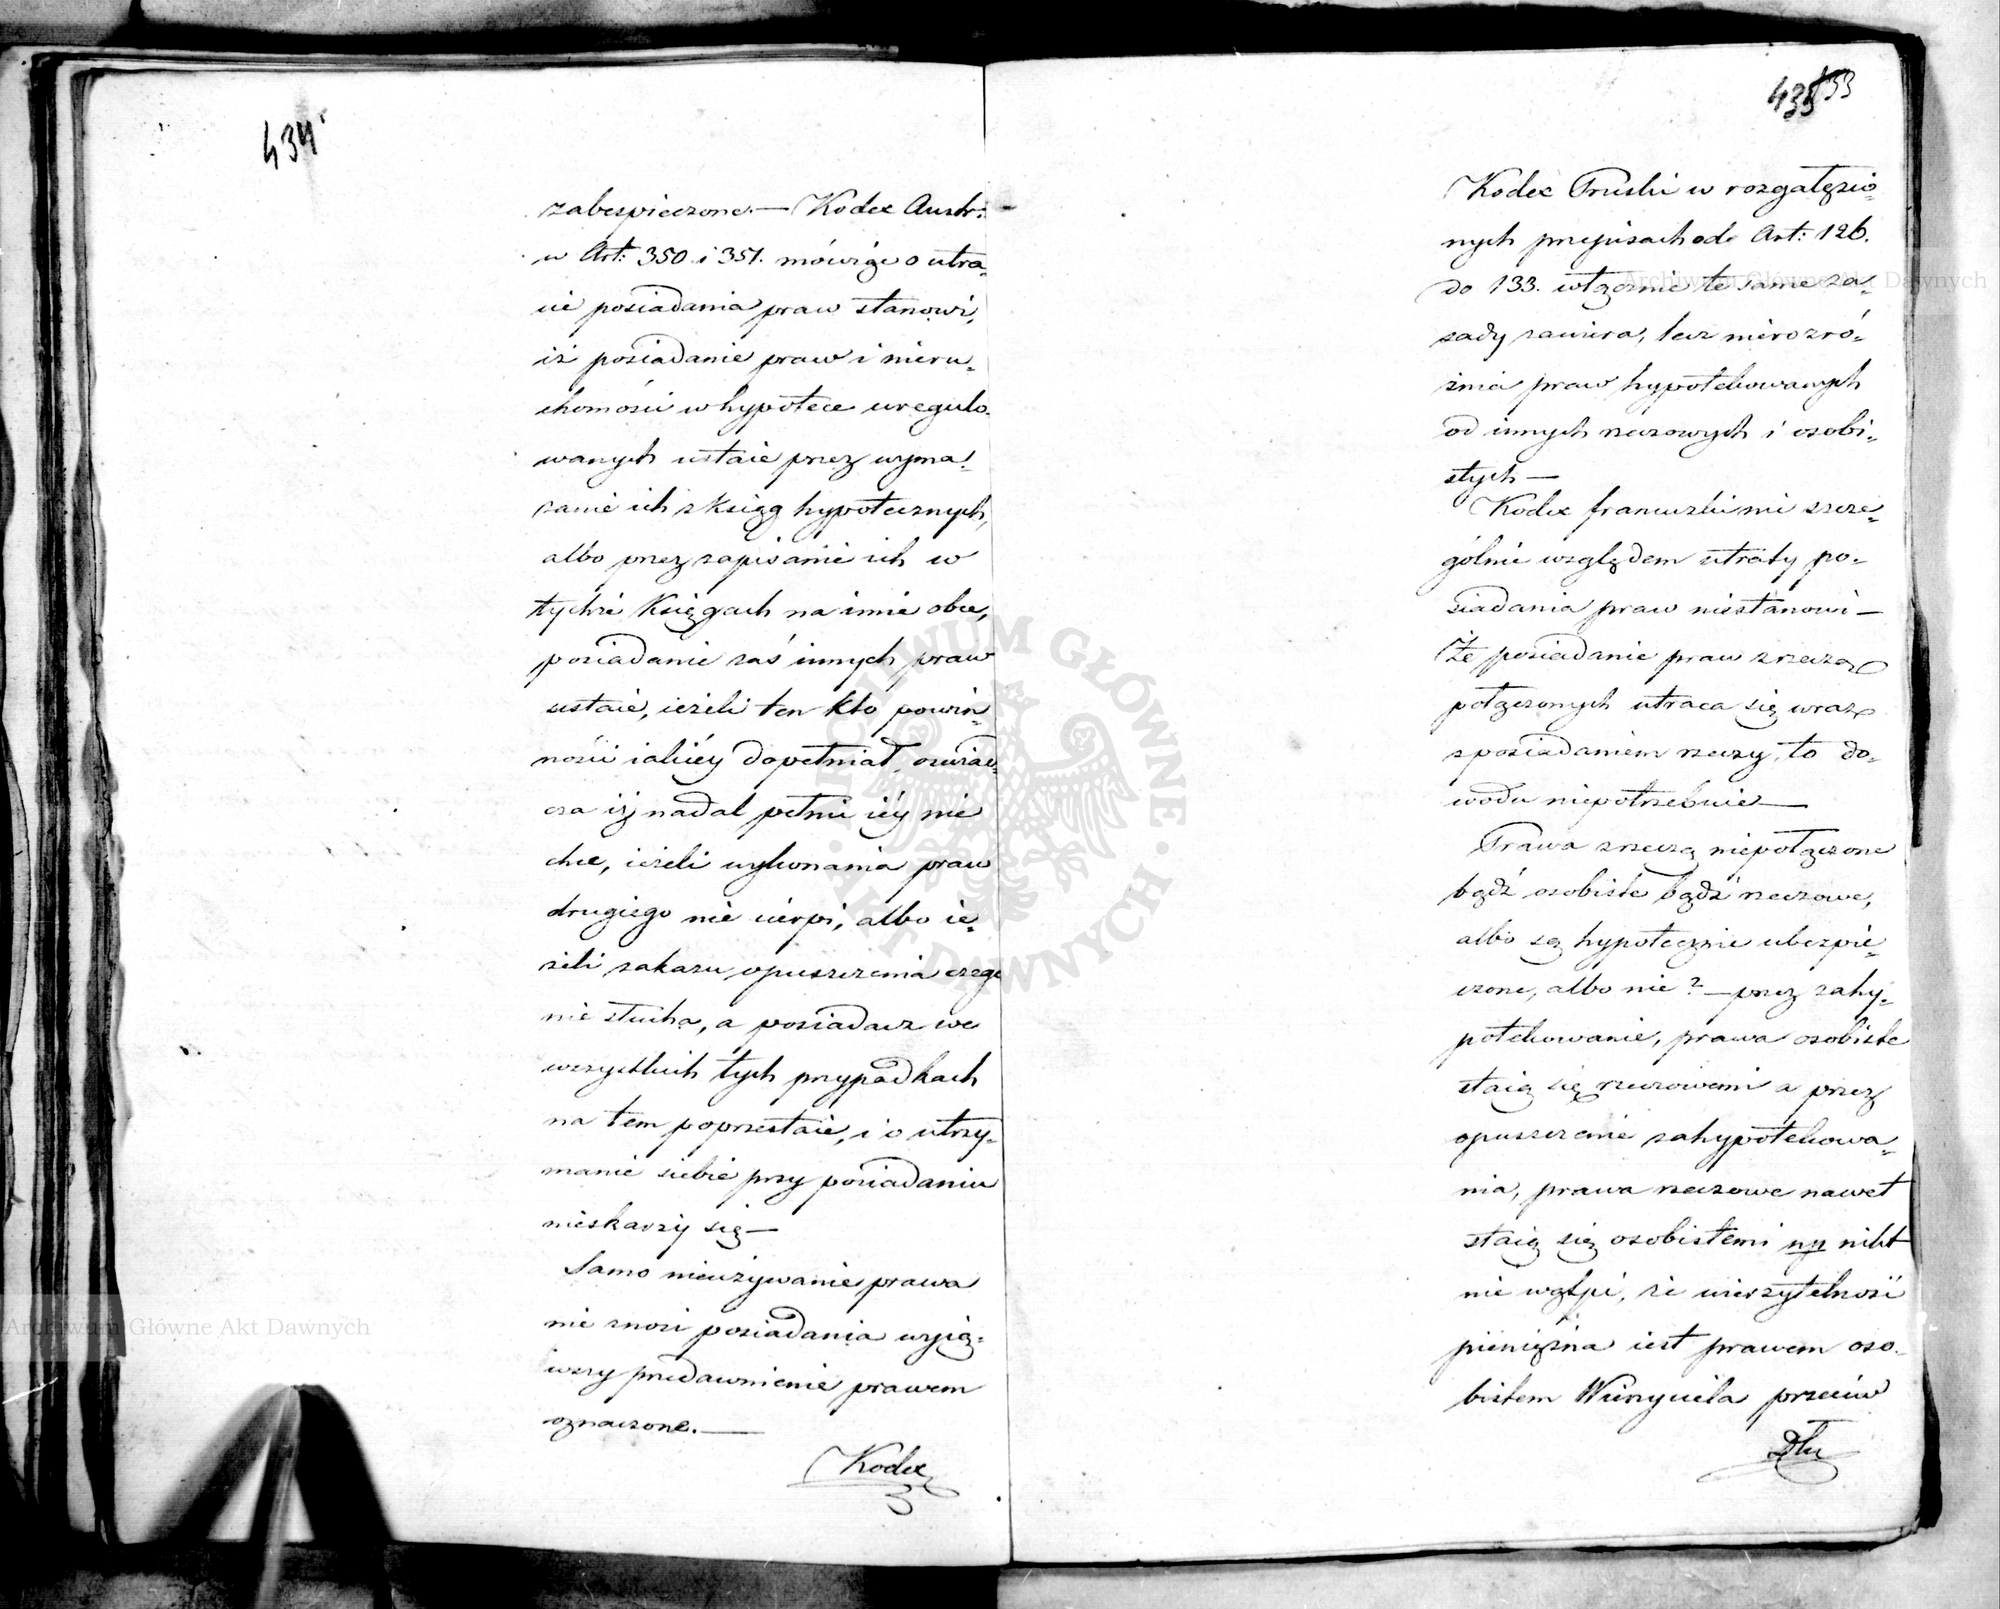 434
zabespieczone. — Kodex Austr:
w Art: 350. i 351. mówiąc o utra-
cie posiadania praw stanowi,
iż posiadanie praw i nieru-
chomości w hypotece uregulo-
wanych ustaie przez wyma-
zanie ich z Ksiąg hypotecznych,
albo przez zapisanie ich w
tychże Księgach na imie obce,
posiadanie zaś innych praw
ustaie, ieżeli ten kto powin-
ności iakiéy dopełniał, oświad-
cza iż nadal pełnić iéy nie
chce, ieżeli wykonania praw
drugiego nie cierpi, albo ie-
żeli zakazu opuszczenia czego
nie słucha, a posiadacz we
wszystkich tych przypadkach
na tem poprzestaie, i o utrzy-
manie siebie przy posiadaniu
nieskarży się —
Samo nieużywanie prawa
nie znosi posiadania wyią-
wszy przedawnienie prawem
oznaczone. —
Kodex
435 133
Kodex Pruski w rozgałęzio-
nych przepisach od Art: 126.
do 133. włącznie te same za-
sady zawiera, lecz nierozró-
żnia praw hypotekowanych
od innych rzeczowych i osobi-
stych —
Kodex francuzki nic szcze-
gólnie względem utraty po-
siadania praw niestanowi —
Że posiadanie praw z rzeczą
połączonych utraca się wraz
z posiadaniem rzeczy, to do-
wodu niepotrzebuie —
Prawa z rzeczą niepołączone
bądź osobiste bądź rzeczowe,
albo są hypotecznie ubezpie-
czone, albo nie? — przez zahy-
potekowanie, prawa osobiste
staią się rzeczowemi a przez
opuszczenie zahypotekowa-
nia, prawa rzeczowe nawet
staią się osobistemi np nikt
nie wątpi, że wierzytelność
pieniężna iest prawem oso-
bistem Wierzyciela przeciw
Dłu
Archiwum Główne Akt Dawnych
Archiwum Główne Akt Dawnych
ARCHIWUM GŁÓWNE · AKT DAWNYCH ·